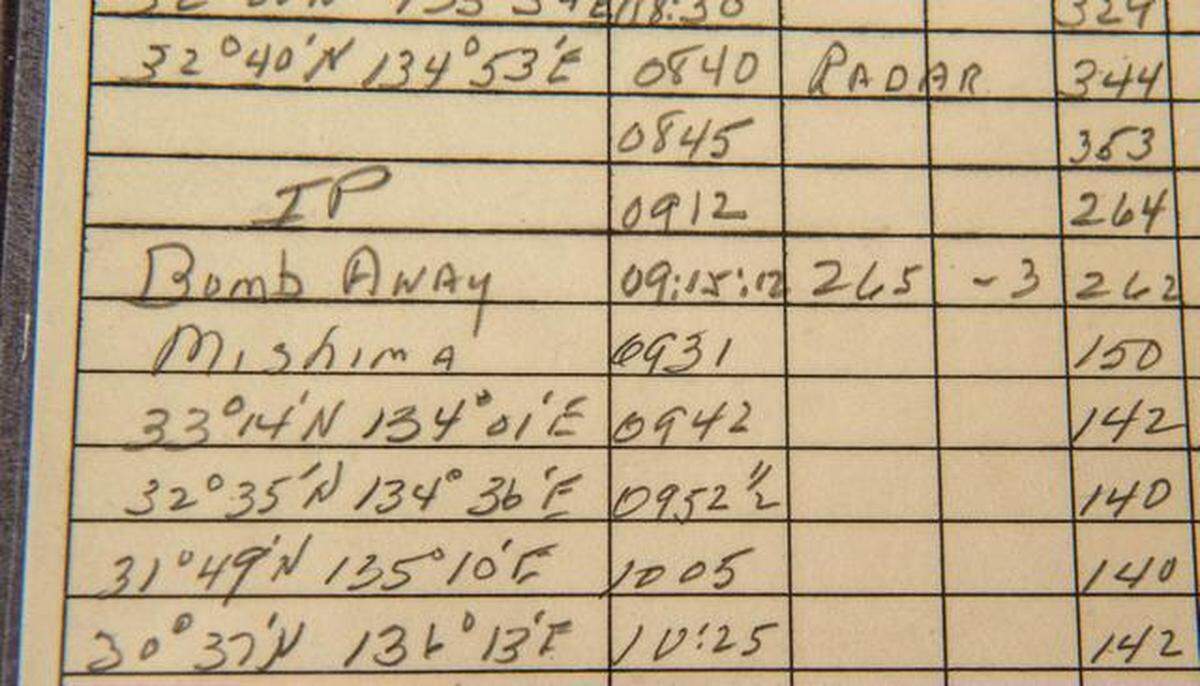 18:30 324
32°40'N 134°53'E 0840 RADAR 344
0845 353
IP 0912 264
Bomb Away 09:15:12 265 -3 262
Mishima 0931 150
33°14'N 134°01'E 0942 142
32°35'N 134°36'E 0952 1/2 140
31°49'N 135°10'E 1005 140
30°37'N 136°13'E 10:25 142